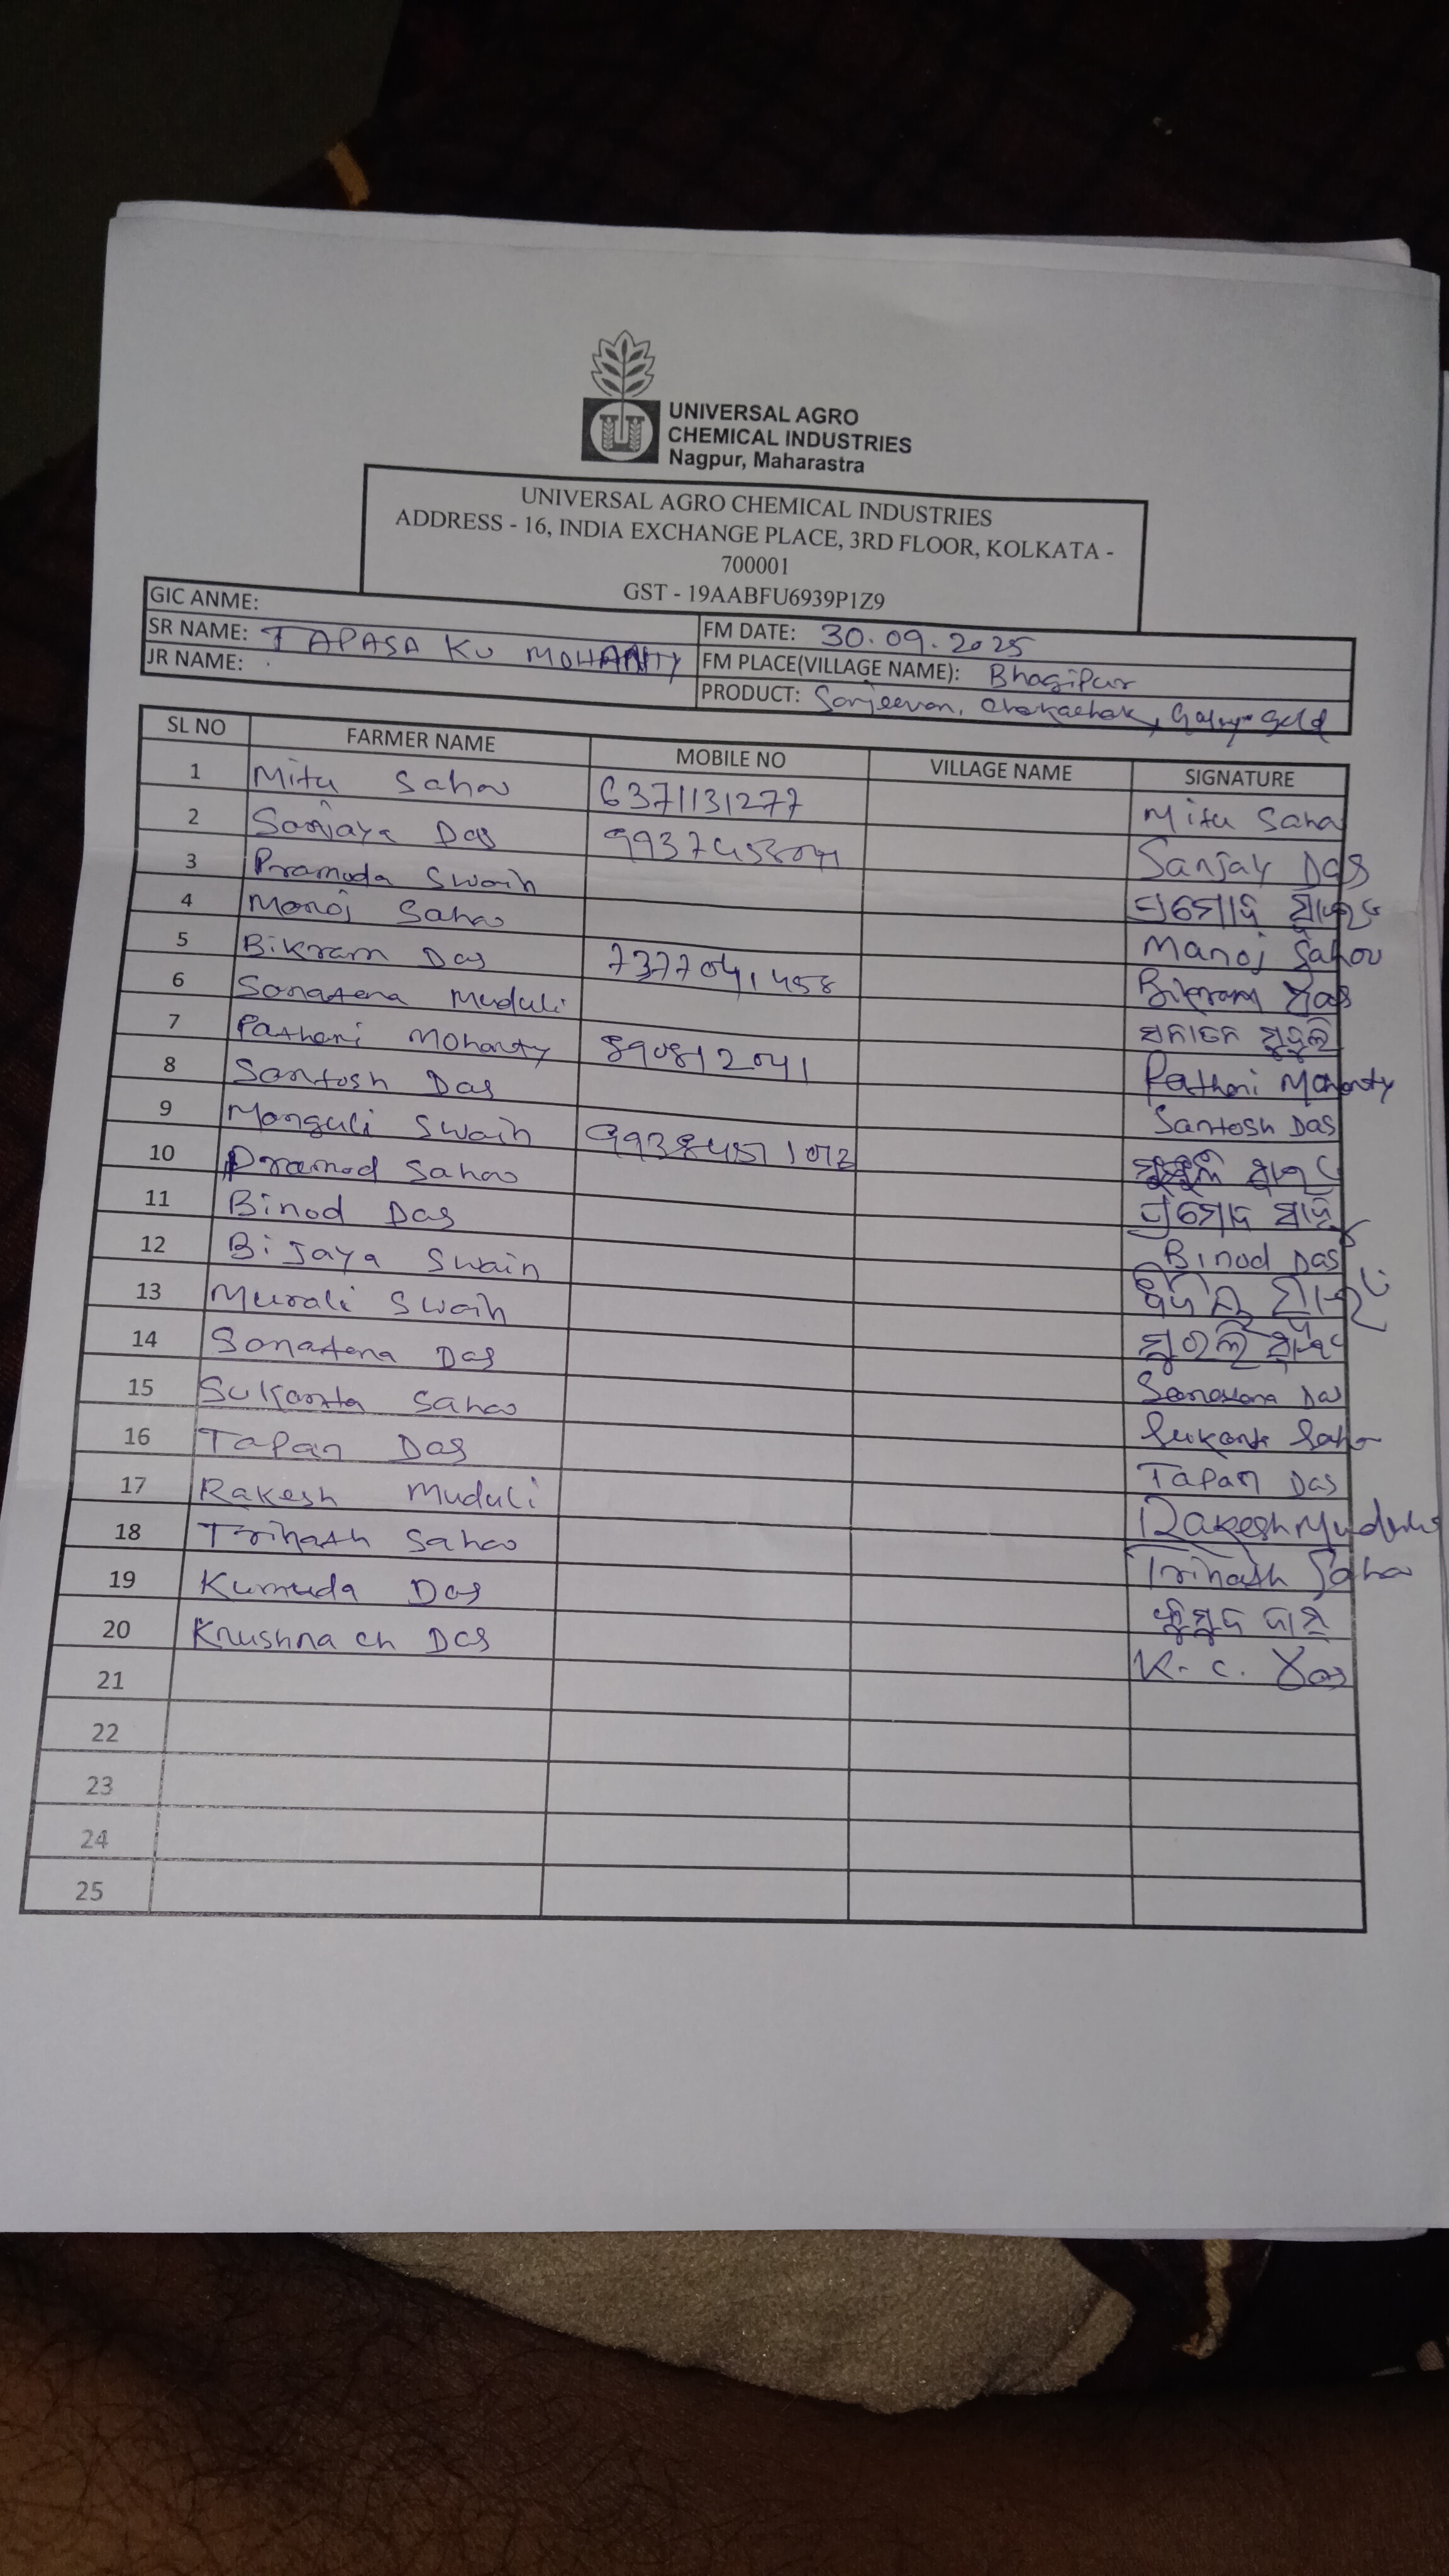 UNIVERSAL AGRO
CHEMICAL INDUSTRIES
Nagpur, Maharastra
UNIVERSAL AGRO CHEMICAL INDUSTRIES
ADDRESS - 16, INDIA EXCHANGE PLACE, 3RD FLOOR, KOLKATA -
700001
GST - 19AABFU6939P1Z9
GIC ANME:
SR NAME: TAPASA KU MOHANTY FM DATE: 30.09.2025
JR NAME: FM PLACE(VILLAGE NAME): Bhagipur
PRODUCT: Sanjeevan, Chakachak, Gold
SL NO FARMER NAME MOBILE NO VILLAGE NAME SIGNATURE
1 Mitu Sahoo 6371131277 Mitu Sahoo
2 Sanjaya Das Sanjay Das
3 Pramoda Swain ପ୍ରମୋଦ ସ୍ୱାଇଁ
4 Manoj Sahoo Manoj Sahoo
5 Bikram Das 7377041458 Bikram Das
6 Sanatana Muduli ସନାତନ ମୁଦୁଲି
7 Pathani Mohanty 890812041 Pathani Mohanty
8 Santosh Das Santosh Das
9 Manguli Swain ସ୍ୱାଇଁ
10 Pramod Sahoo ପ୍ରମୋଦ ସାହୁ
11 Binod Das Binod Das
12 Bijaya Swain ସ୍ୱାଇଁ
13 Murali Swain ମୁରଲି ସ୍ୱାଇଁ
14 Sanatana Das Sanatana Das
15 Sukanta Sahoo Sukanta Sahoo
16 Tapan Das Tapan Das
17 Rakesh Muduli Rakesh Muduli
18 Trinath Sahoo Trinath Sahoo
19 Kumuda Das କୁମୁଦ ଦାସ
20 Krushna ch Das K. c. Das
21
22
23
24
25